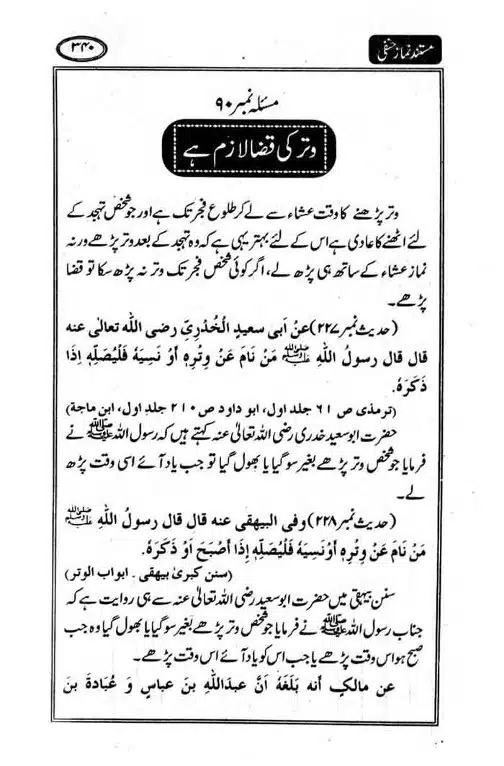 مستند نماز حنفی
۳۴۰
مسئلہ نمبر ۹۰
وتر کی قضا لازم ہے
وتر پڑھنے کا وقت عشاء سے لے کر طلوع فجر تک ہے اور جو شخص تہجد کے
لئے اٹھنے کا عادی ہے اس کے لئے بہتر یہی ہے کہ وہ تہجد کے بعد وتر پڑھے ورنہ
نماز عشاء کے ساتھ ہی پڑھ لے، اگر کوئی شخص فجر تک وتر نہ پڑھ سکا تو قضا
پڑھے۔
(حدیث نمبر ۲۲۷) عَنْ اَبی سعیدِ الْخُدْرِیِّ رضی اللہ تعالی عنہ
قال قال رسولُ اللهِ ﷺ مَنْ نَامَ عَنْ وِتْرِهٖ اَوْ نَسِیَهٗ فَلْیُصَلِّهٖ اِذَا
ذَکَرَهٗ.
(ترمذی ص ۶۱ جلد اول، ابو داود ص ۲۱۰ جلد اول، ابن ماجة)
حضرت ابوسعید خدری رضی اللہ تعالیٰ عنہ کہتے ہیں کہ رسول اللہ ﷺ نے
فرمایا جو شخص وتر پڑھے بغیر سو گیا یا بھول گیا تو جب یاد آئے اسی وقت پڑھ
لے۔
(حدیث نمبر ۲۲۸) وفی البیهقی عنه قال قال رسولُ اللهِ ﷺ
مَنْ نَامَ عَنْ وِتْرِهٖ اَوْنَسِیَهٗ فَلْیُصَلِّهٖ اِذَا اَصْبَحَ اَوْ ذَکَرَهٗ.
(سنن کبریٰ بیهقی ۔ ابواب الوتر)
سنن بیہقی میں حضرت ابوسعید رضی اللہ تعالیٰ عنہ سے ہی روایت ہے کہ
جناب رسول اللہ ﷺ نے فرمایا جو شخص وتر پڑھے بغیر سو گیا یا بھول گیا وہ جب
صبح ہو اس وقت پڑھے یا جب اس کو یاد آئے اس وقت پڑھے۔
عن مالکٍ أنه بَلَغَهٗ اَنَّ عبدَاللهِ بنَ عباسٍ وَ عُبَادَةَ بنَ